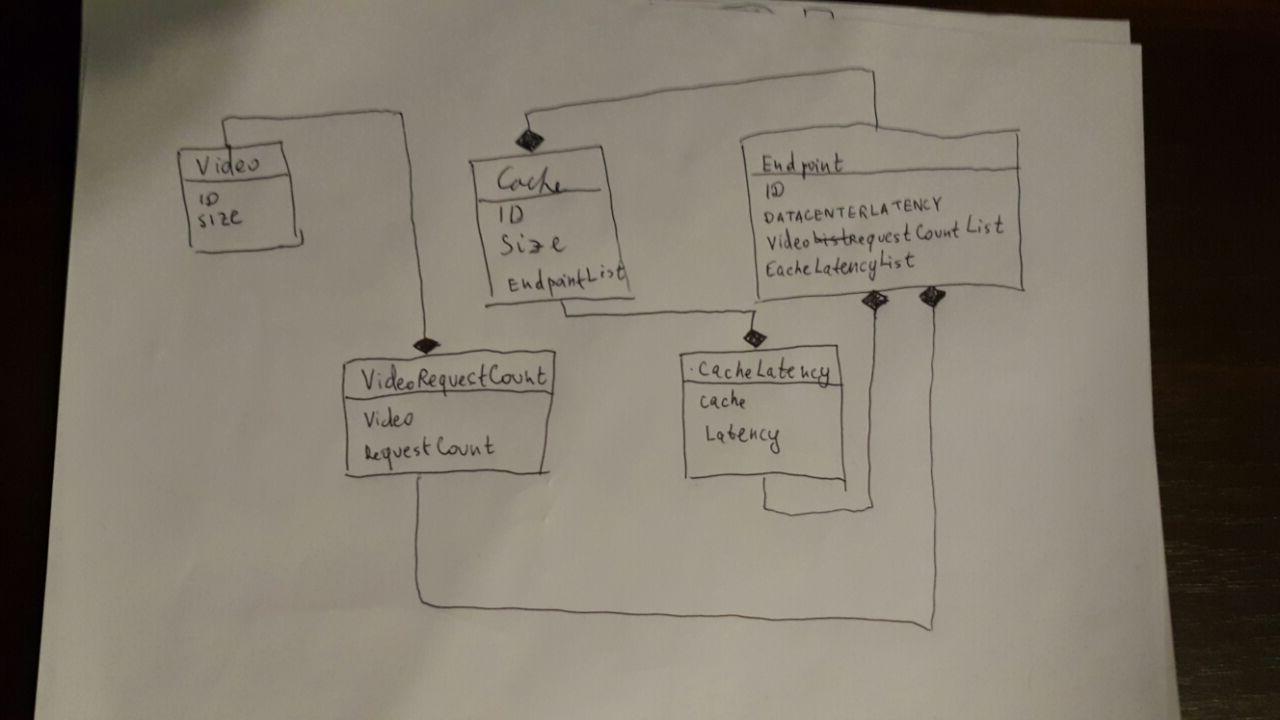 Video
ID
SIZE
Cache
ID
Size
EndpointList
Endpoint
ID
DATACENTERLATENCY
VideoListRequestCountList
CacheLatencyList
VideoRequestCount
Video
RequestCount
CacheLatency
Cache
Latency